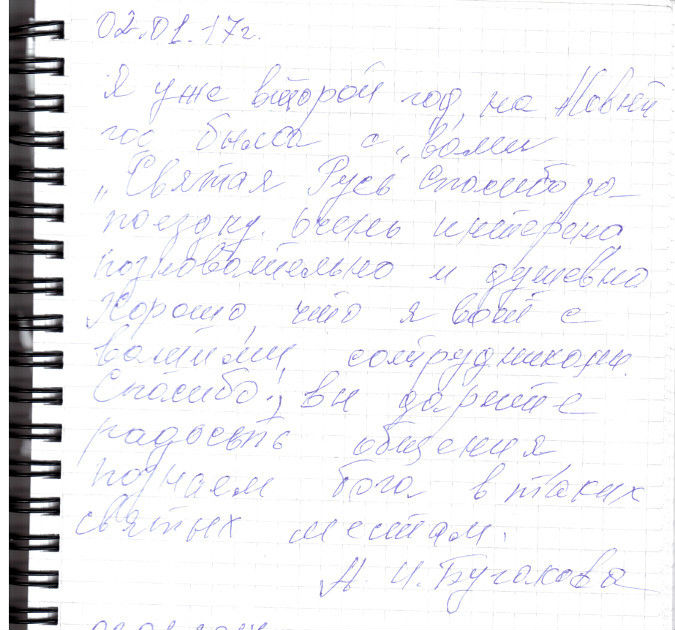 02.01.17г.
Я уже второй год, на Новый
год была с „вами
„Святая Русь Спасибо за
поездку. Очень интерено,
познавательно и душевно
Хорошо, что я вот с
вашими сотрудниками.
Спасибо! Вы дарите
радость общения
познаем бога в таких
святых местам.
А. И.